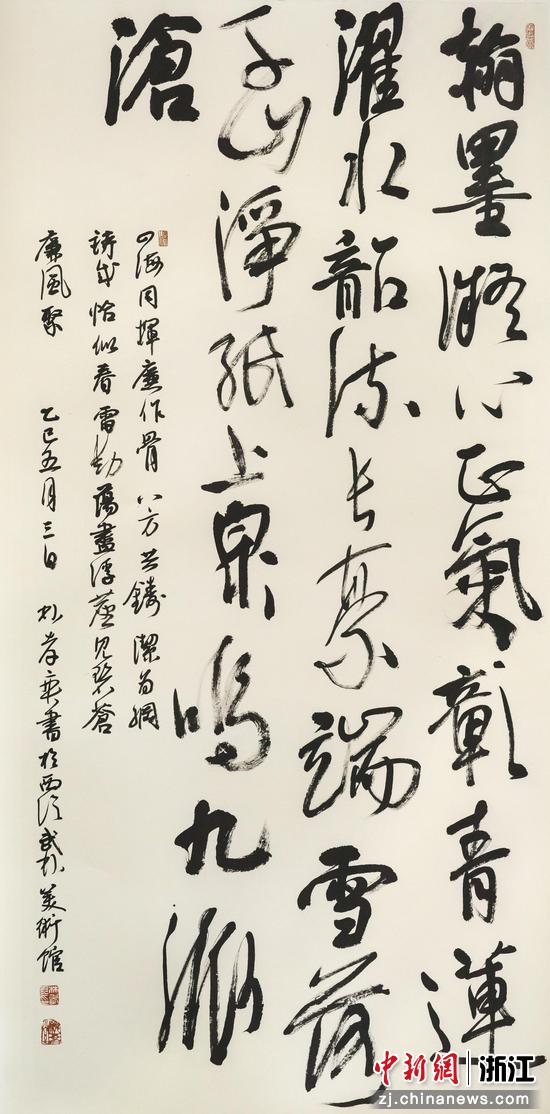 翰墨凝心正氣彰青蓮
濯水韻流長毫端雪落
千山淨紙上泉鳴九派
滄
四海同揮廉作骨八方共鑄潔為綱
詩成恰似春雷動蕩盡浮塵見碧蒼
廉風聚 乙巳五月三日 書於西泠 美術館
中新網 浙江
zj.chinanews.com